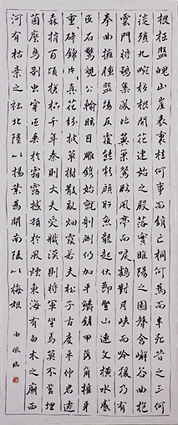 根柢盤魄山崖表裏桂何事而銷亡桐何為而半死昔之三河
徙殖九畹移根開花建始之殿落實睢陽之園聲含嶰谷曲抱
雲門將雛集鳳比翼巢鴛臨風亭而唳鶴對月峽而吟猿乃有
拳曲擁腫盤坳反覆熊彪顧盼魚龍起伏節豎山連文橫水蹙
匠石驚視公輸眩目雕鐫始就剞劂仍加平鱗鏟甲落角摧牙
重碎錦片真花紛披草樹散亂煙霞若夫松子古度平仲君遷
森梢百頃槎枿千年秦則大夫受職漢則將軍坐焉莫不苔埋
菌壓鳥剝蟲穿低垂於霜露撼頓於風煙東海有白木之廟西
河有枯桑之社北陸以楊葉為關南陵以梅根